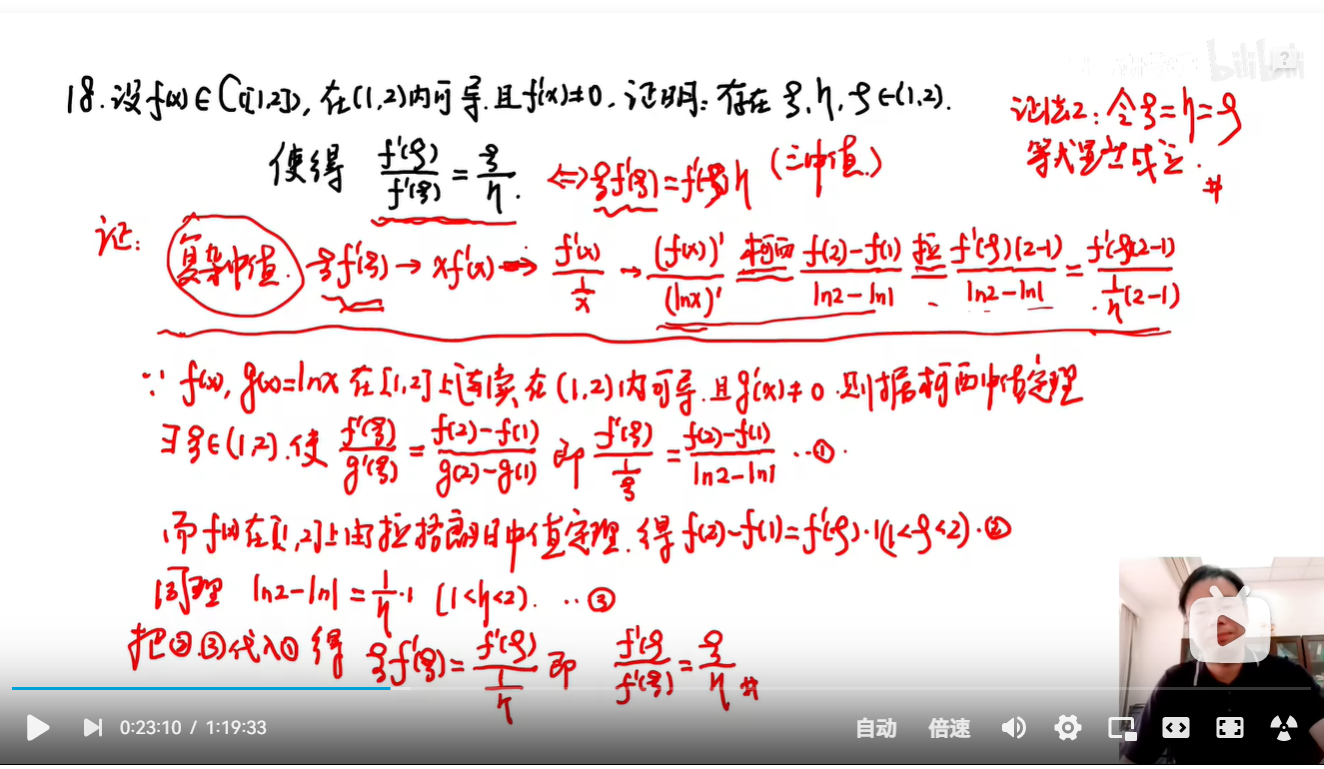 bilibili
18.设f(x)∈C([1,2]),在(1,2)内可导.且f'(x)≠0.证明:存在ξ,η,ρ∈(1,2).
使得 f'(ρ)/f'(ξ)=ξ/η. ⇔ξf'(ξ)=f'(ρ)η (三中值.)
证法2:令ξ=η=ρ
等式显然成立.
#
证: 复杂中值. ξf'(ξ)→xf'(x)→f'(x)/(1/x)→(f(x))'/(lnx)' 柯西 (f(2)-f(1))/(ln2-ln1) 拉 f'(ρ)(2-1)/(ln2-ln1)=f'(ρ)(2-1)/((1/η)(2-1))
∵ f(x),g(x)=lnx在[1,2]上连续在(1,2)内可导.且g'(x)≠0.则据柯西中值定理
∃ξ∈(1,2).使 f'(ξ)/g'(ξ)=(f(2)-f(1))/(g(2)-g(1)) 即 f'(ξ)/(1/ξ)=(f(2)-f(1))/(ln2-ln1) ‥①.
而f(x)在[1,2]上由拉格朗日中值定理.得f(2)-f(1)=f'(ρ)·1(1<ρ<2)·②
同理 ln2-ln1=1/η·1 (1<η<2). ‥③
把②.③代入①得 ξf'(ξ)=f'(ρ)/(1/η) 即 f'(ρ)/f'(ξ)=ξ/η #
0:23:10 / 1:19:33 自动 倍速